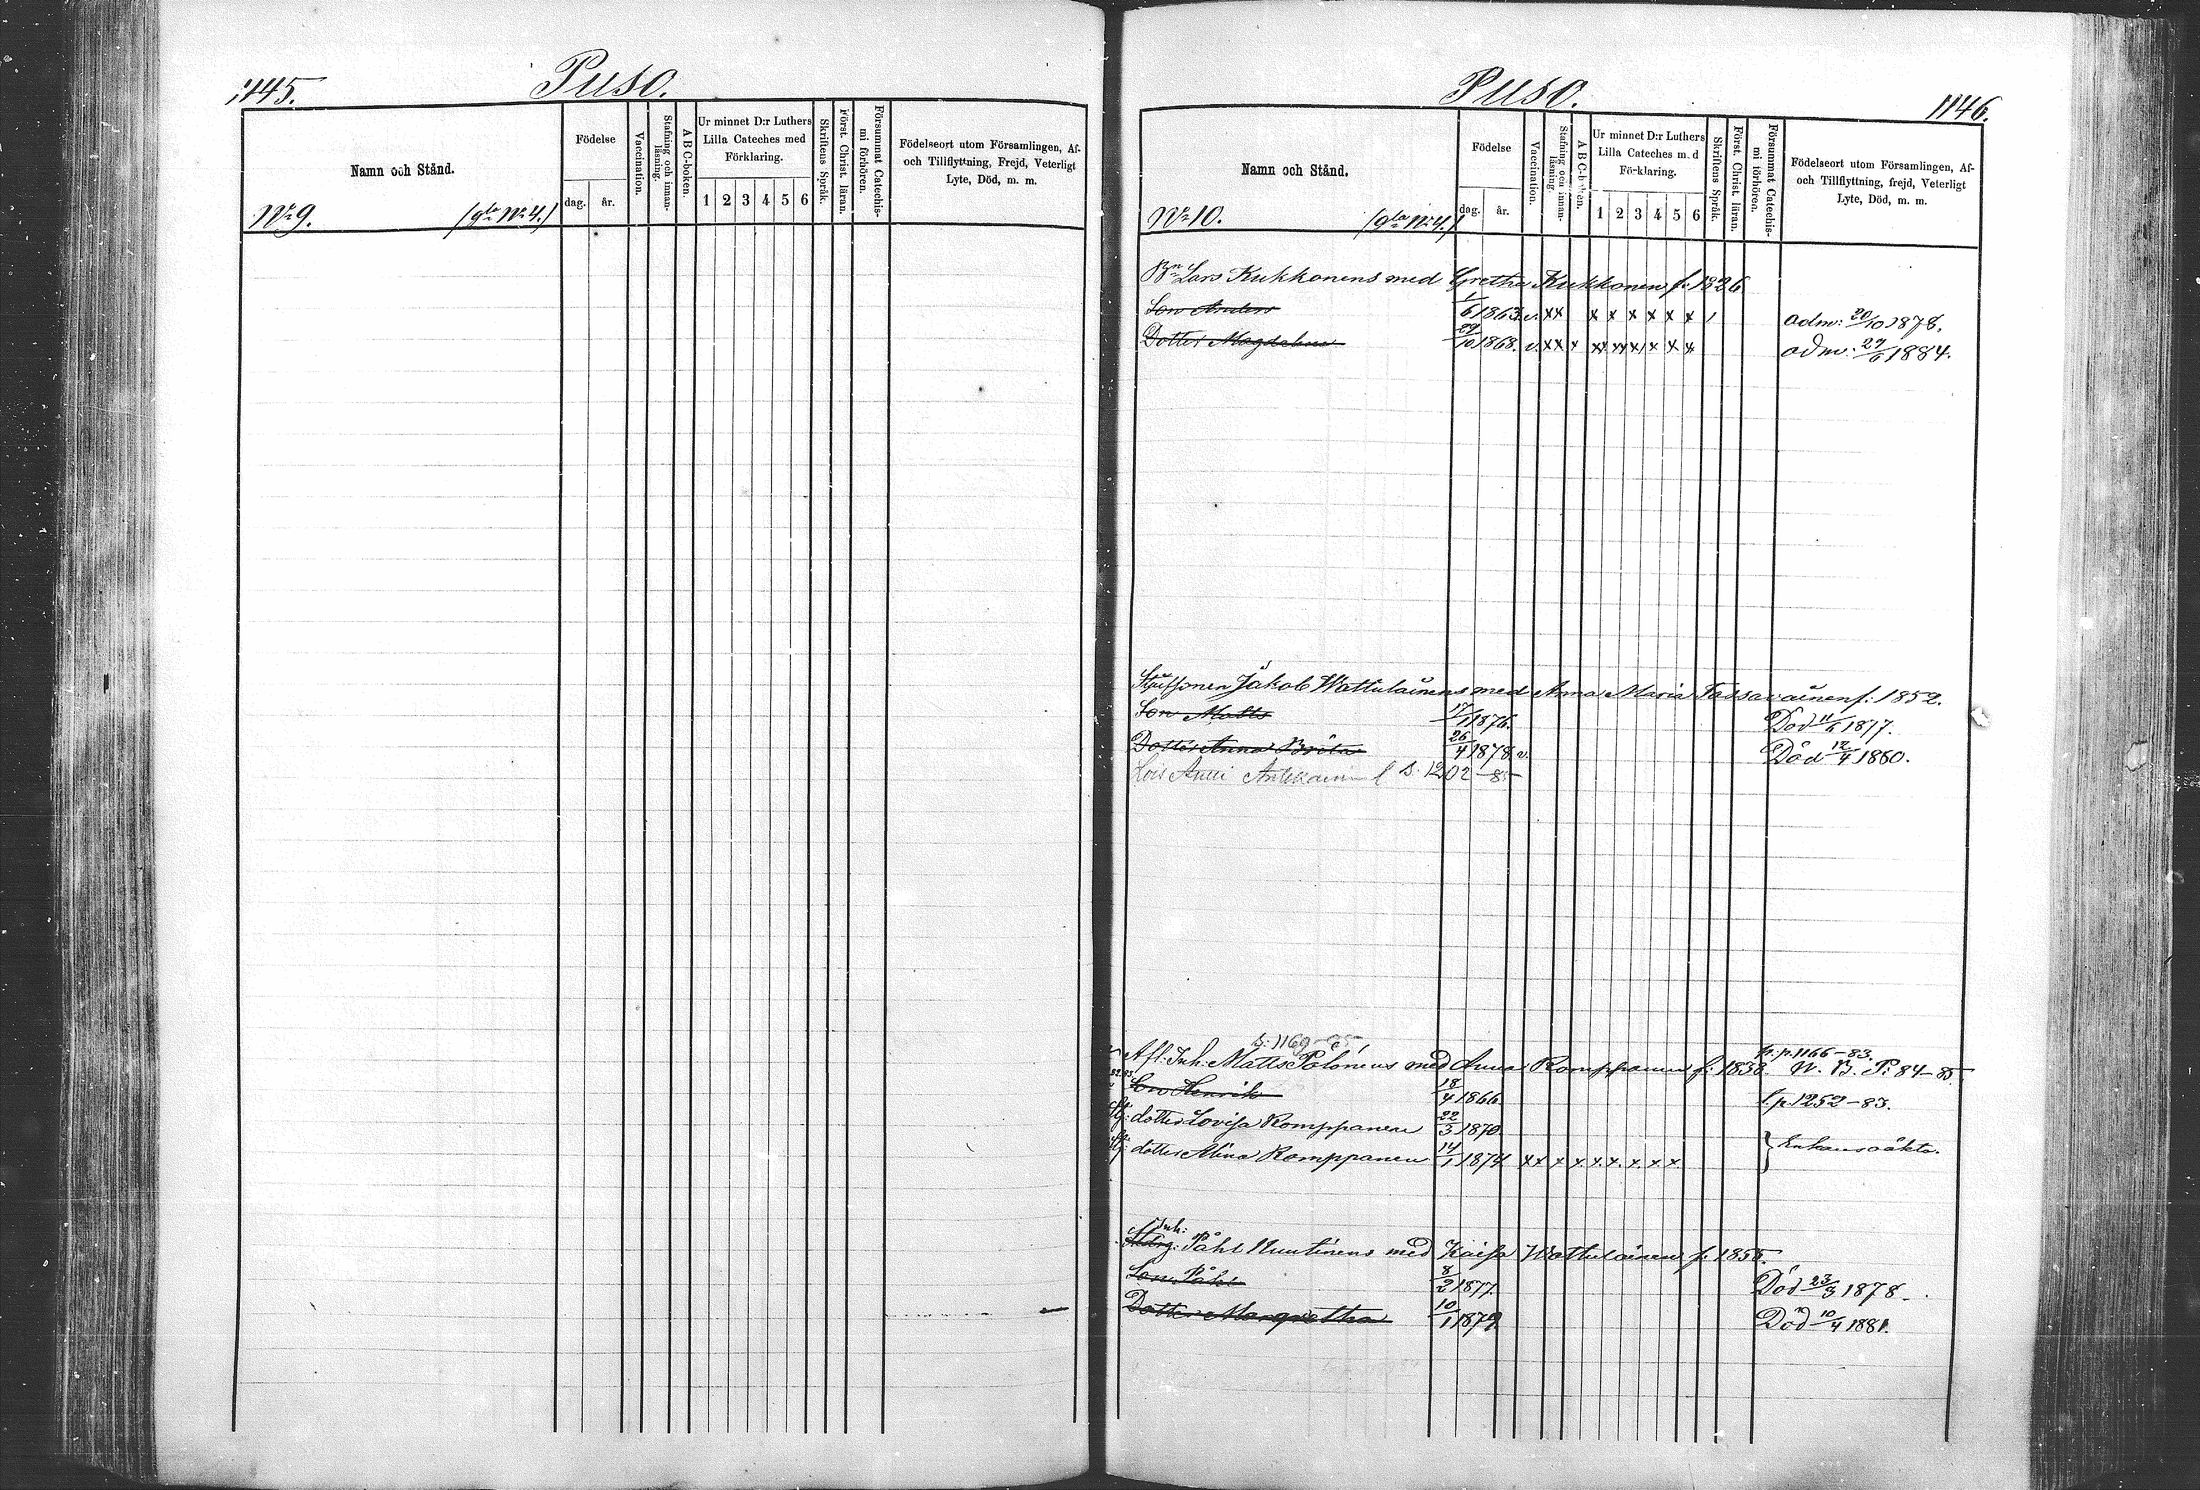 1145.
Puso.
Namn och Stånd.
Födelse
dag.
år.
Vaccination.
Stafning och innanläsning.
A B C-boken.
Ur minnet D:r Luthers
Lilla Cateches med
Förklaring.
1 2 3 4 5 6
Skriftens Språk.
Först. Christ. läran.
Försummat Catechismi förhören.
Födelseort utom Församlingen, Af-
och Tillflyttning, Frejd, Veterligt
Lyte, Död, m. m.
No 9. /gla No 4./
Puso.
1146.
Namn och Stånd.
Födelse
dag.
år.
Vaccination.
Stafning och innanläsning.
A B C-boken.
Ur minnet D:r Luthers
Lilla Cateches m.d
Förklaring.
1 2 3 4 5 6
Skriftens Språk.
Först. Christ. läran.
Försummat Catechismi förhören.
Födelseort utom Församlingen, Af-
och Tillflyttning, frejd, Veterligt
Lyte, Död, m. m.
No 10. /gla No 4./
Bn Lars Kukkonens med Gretha Kukkonen f. 1826
Son Anders 1/6 1863. v. xx x x x x x x / adm: 20/10 1878.
Dotter Magdalena 29/10 1868. v. xx x xx xx x/ x x x adm: 29/6 1884.
Jakob Wattulainens med Anna Maria Tassavainen f: 1852.
Son Matts 17/1 1876. Död 11/6 1877.
Dotter Anna Brita 26/4 1878 v. Död 12/4 1880.
s. 1202-85
s. 1169-85
Afl: Inh: Matts Palonens med Anna Romppanen f: 1838 p. p. 1166-83. N. B. P: 84-85
Son Henrik 18/4 1866. f. p. 1252-83.
dotter Lovisa Romppanen 22/3 1870.
dotter Alina Romppanen 14/1 1874 x x x x x x x x x } Enkans oäkta.
Inh:
Påhl Nuutinens med Kaisa Wattulainen f. 1855.
Son Påhl 8/2 1877. Död 23/3 1878.
Dotter Margretha 10/1 1879 Död 10/4 1881.